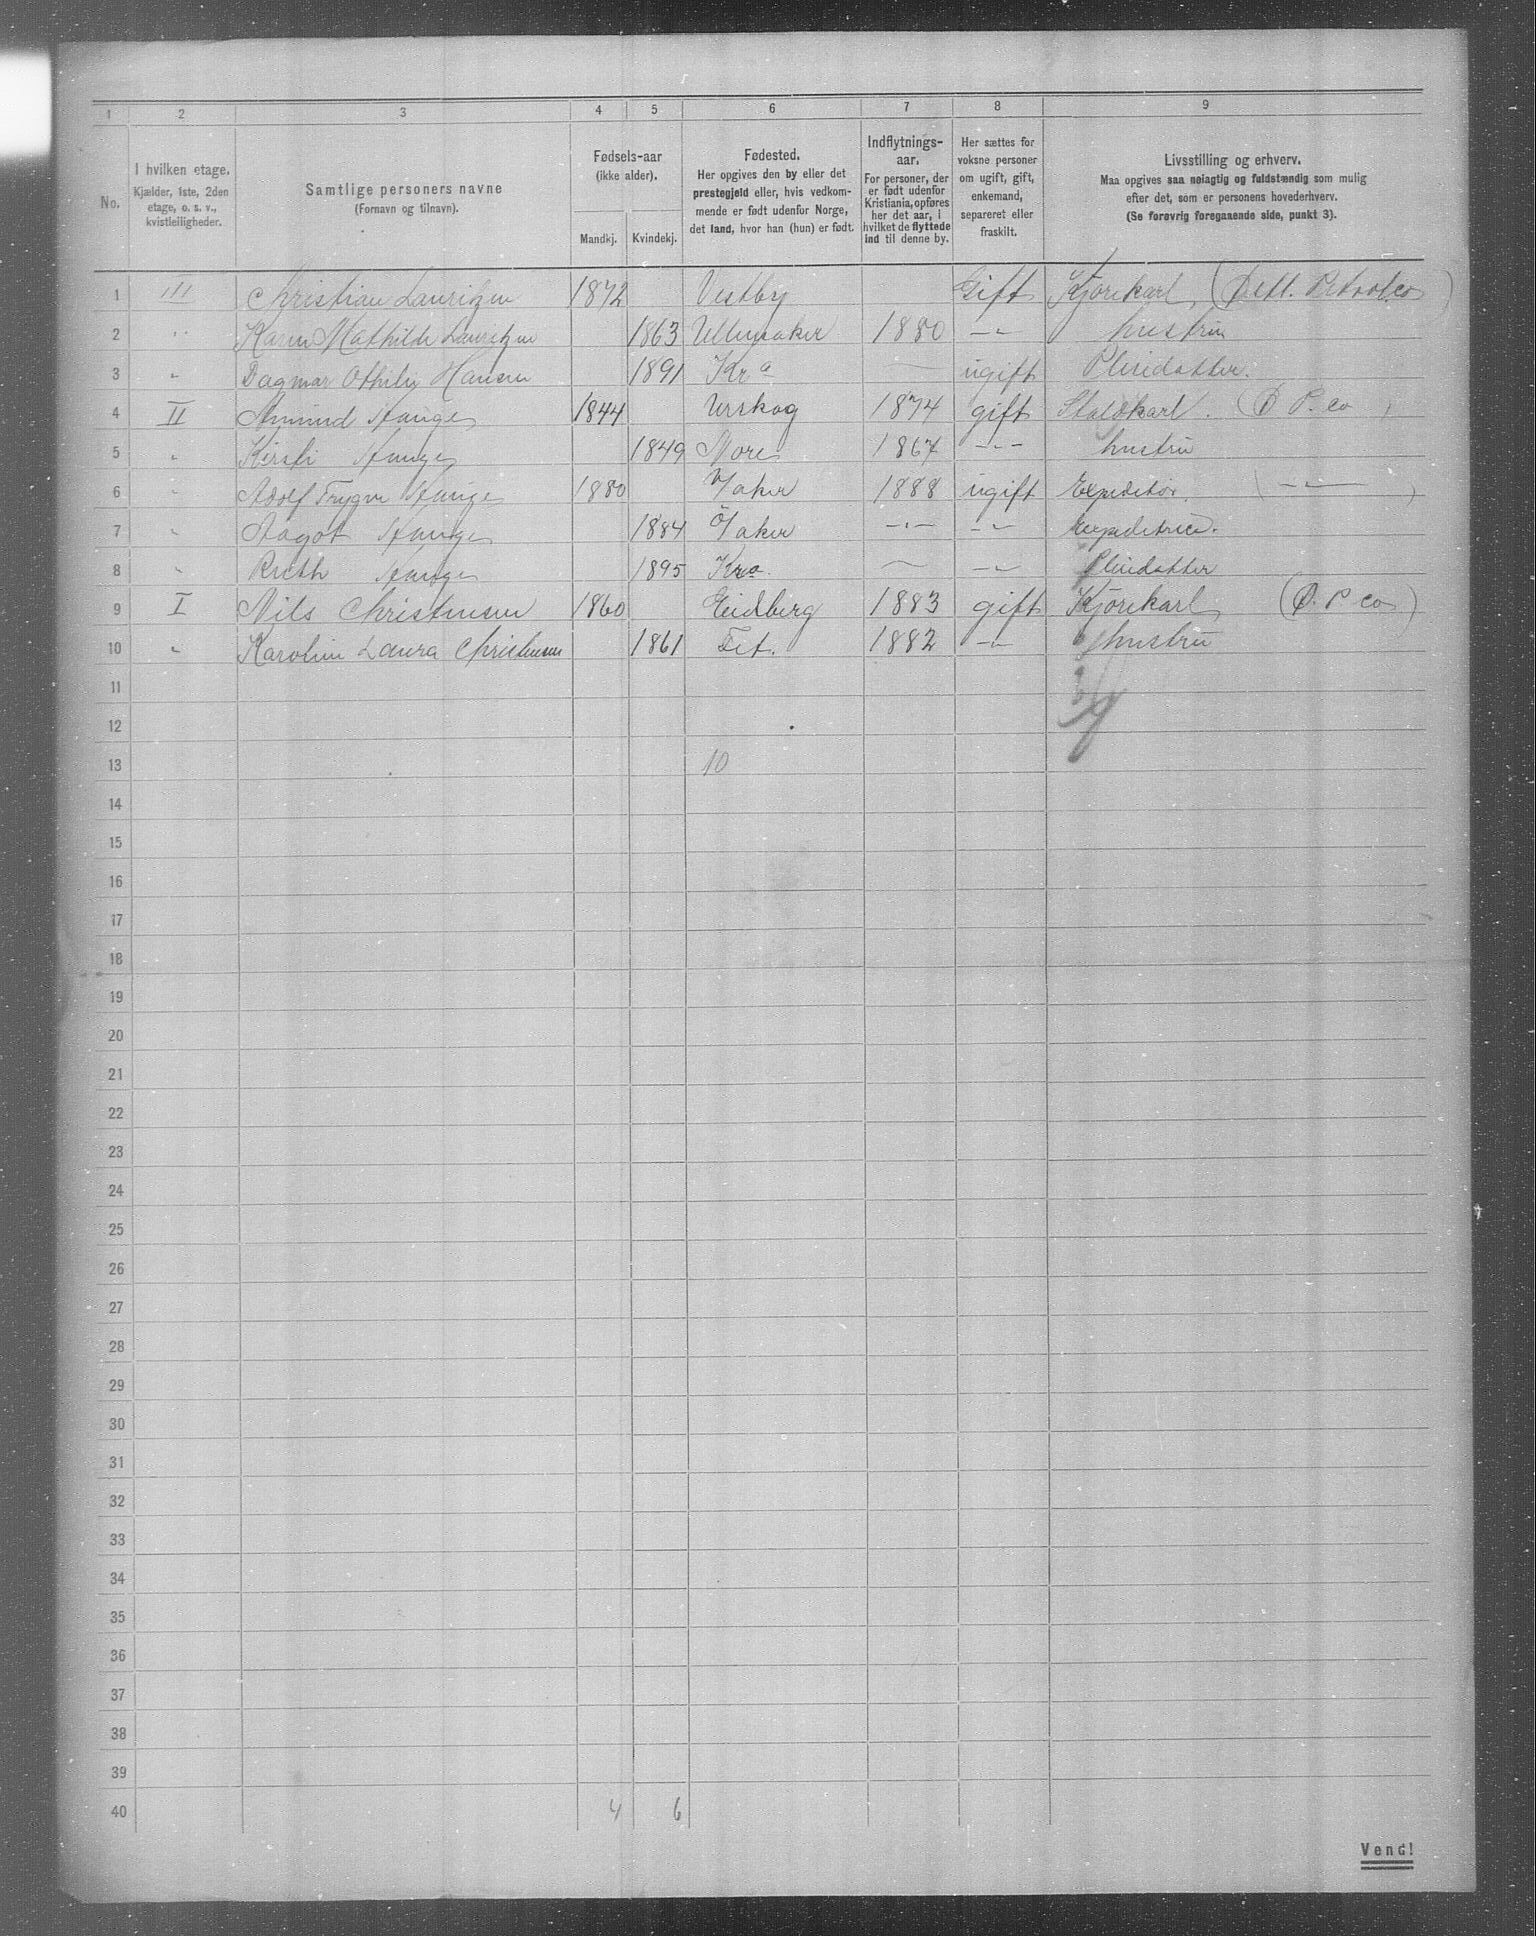 1 2 3 4 5 6 7 8 9
No.
I hvilken etage.
Kjælder, 1ste, 2den
etage, o. s. v.,
kvistleiligheder.
Samtlige personers navne
(Fornavn og tilnavn).
Fødsels-aar
(ikke alder).
Mandkj. Kvindekj.
Fødested.
Her opgives den by eller det
prestegjeld eller, hvis vedkom-
mende er født udenfor Norge,
det land, hvor han (hun) er født.
Indflytnings-
aar.
For personer, der
er født udenfor
Kristiania, opføres
her det aar, i
hvilket de flyttede
ind til denne by.
Her sættes for
voksne personer
om ugift, gift,
enkemand,
separeret eller
fraskilt.
Livsstilling og erhverv.
Maa opgives saa nøiagtig og fuldstændig som mulig
efter det, som er personens hovederhverv.
(Se forøvrig foregaaende side, punkt 3).
1 III Christian Lauritzen 1872 Vestby Gift Kjørekarl (Østl. Petrol.co)
2 " Karen Mathilde Lauritzen 1863 Ullensaker 1880 -"- hustru
3 " Dagmar Othilie Hansen 1891 Kra — ugift Pleiedatter.
4 II Amund Hauge 1844 Urskog 1874 gift Staldkarl. (Ø P. co)
5 " Kirsti Hauge 1849 1867 -"- hustru
6 " Adolf Trygve Hauge 1880 V/aker 1888 ugift Expeditør. (-"-)
7 " Aagot Hauge 1884 Ö/aker -"- -"- Expeditrice.
8 " Ruth Hauge 1895 Kra. — -"- Pleiedatter
9 I Nils Christensen 1860 Eidberg 1883 gift Kjørekarl (Ø. P co)
10 " Karoline Laura Christensen 1861 Fet. 1882 -"- hustru
11
12
13 10
14
15
16
17
18
19
20
21
22
23
24
25
26
27
28
29
30
31
32
33
34
35
36
37
38
39
40 4 6
Vend!